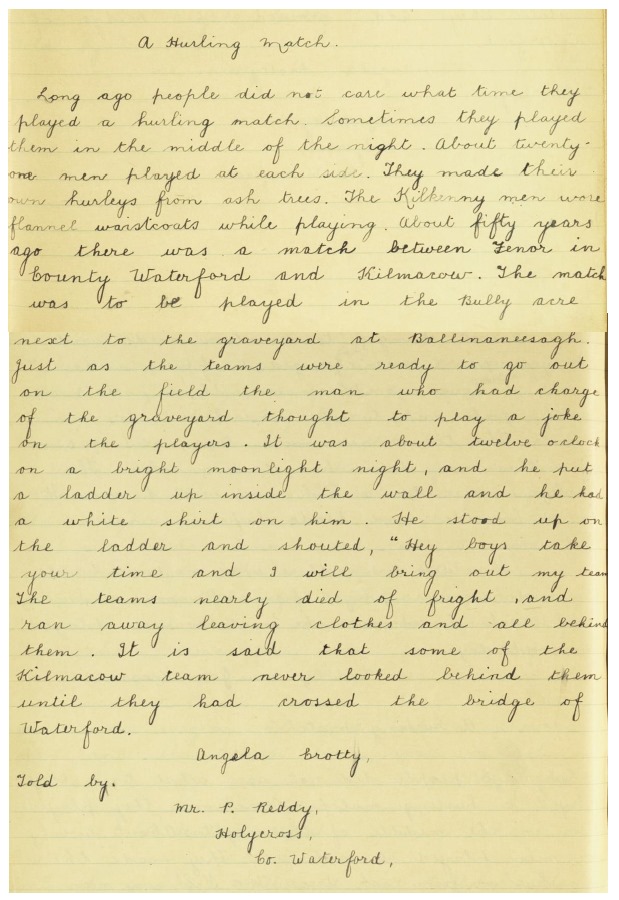 A Hurling Match.
Long ago people did not care what time they
played a hurling match. Sometimes they played
them in the middle of the night. About twenty-
one men played at each side. They made their
own hurleys from ash trees. The Kilkenny men wore
flannel waistcoats while playing. About fifty years
ago there was a match between Fenor in
County Waterford and Kilmacow. The match
was to be played in the Bully acre
next to the graveyard at Ballinaneesagh.
Just as the teams were ready to go out
on the field the man who had charge
of the graveyard thought to play a joke
on the players. It was about twelve o clock
on a bright moonlight night, and he put
a ladder up inside the wall and he had
a white shirt on him. He stood up on
the ladder and shouted, "Hey boys take
your time and I will bring out my team
The teams nearly died of fright, and
ran away leaving clothes and all behind
them. It is said that some of the
Kilmacow team never looked behind them
until they had crossed the bridge of
Waterford.
Angela Crotty,
Told by.
Mr. P. Reddy,
Holycross,
Co. Waterford,